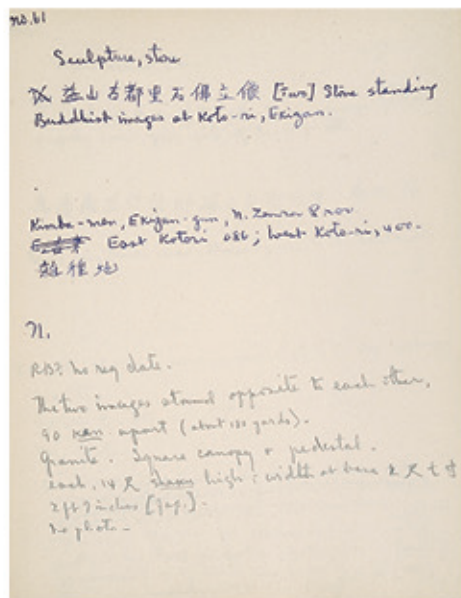 no.61
Sculpture, stone
益山古都里石佛立像 [Two] Stone standing
Buddhist images at Koto-ri, Ekigan.
Kimba-men, Ekigan-gun, N. Zenra Prov.
East Kotori 086; West Koto-ri, 400.
雜種地
N.
no reg date.
The two images stand opposite to each other,
90 ken apart (about 180 yards).
Granite. Square canopy & pedestal.
each, 14 尺 high: width at base 2 尺 七寸
2 ft 7 inches [Jap.].
No photo.